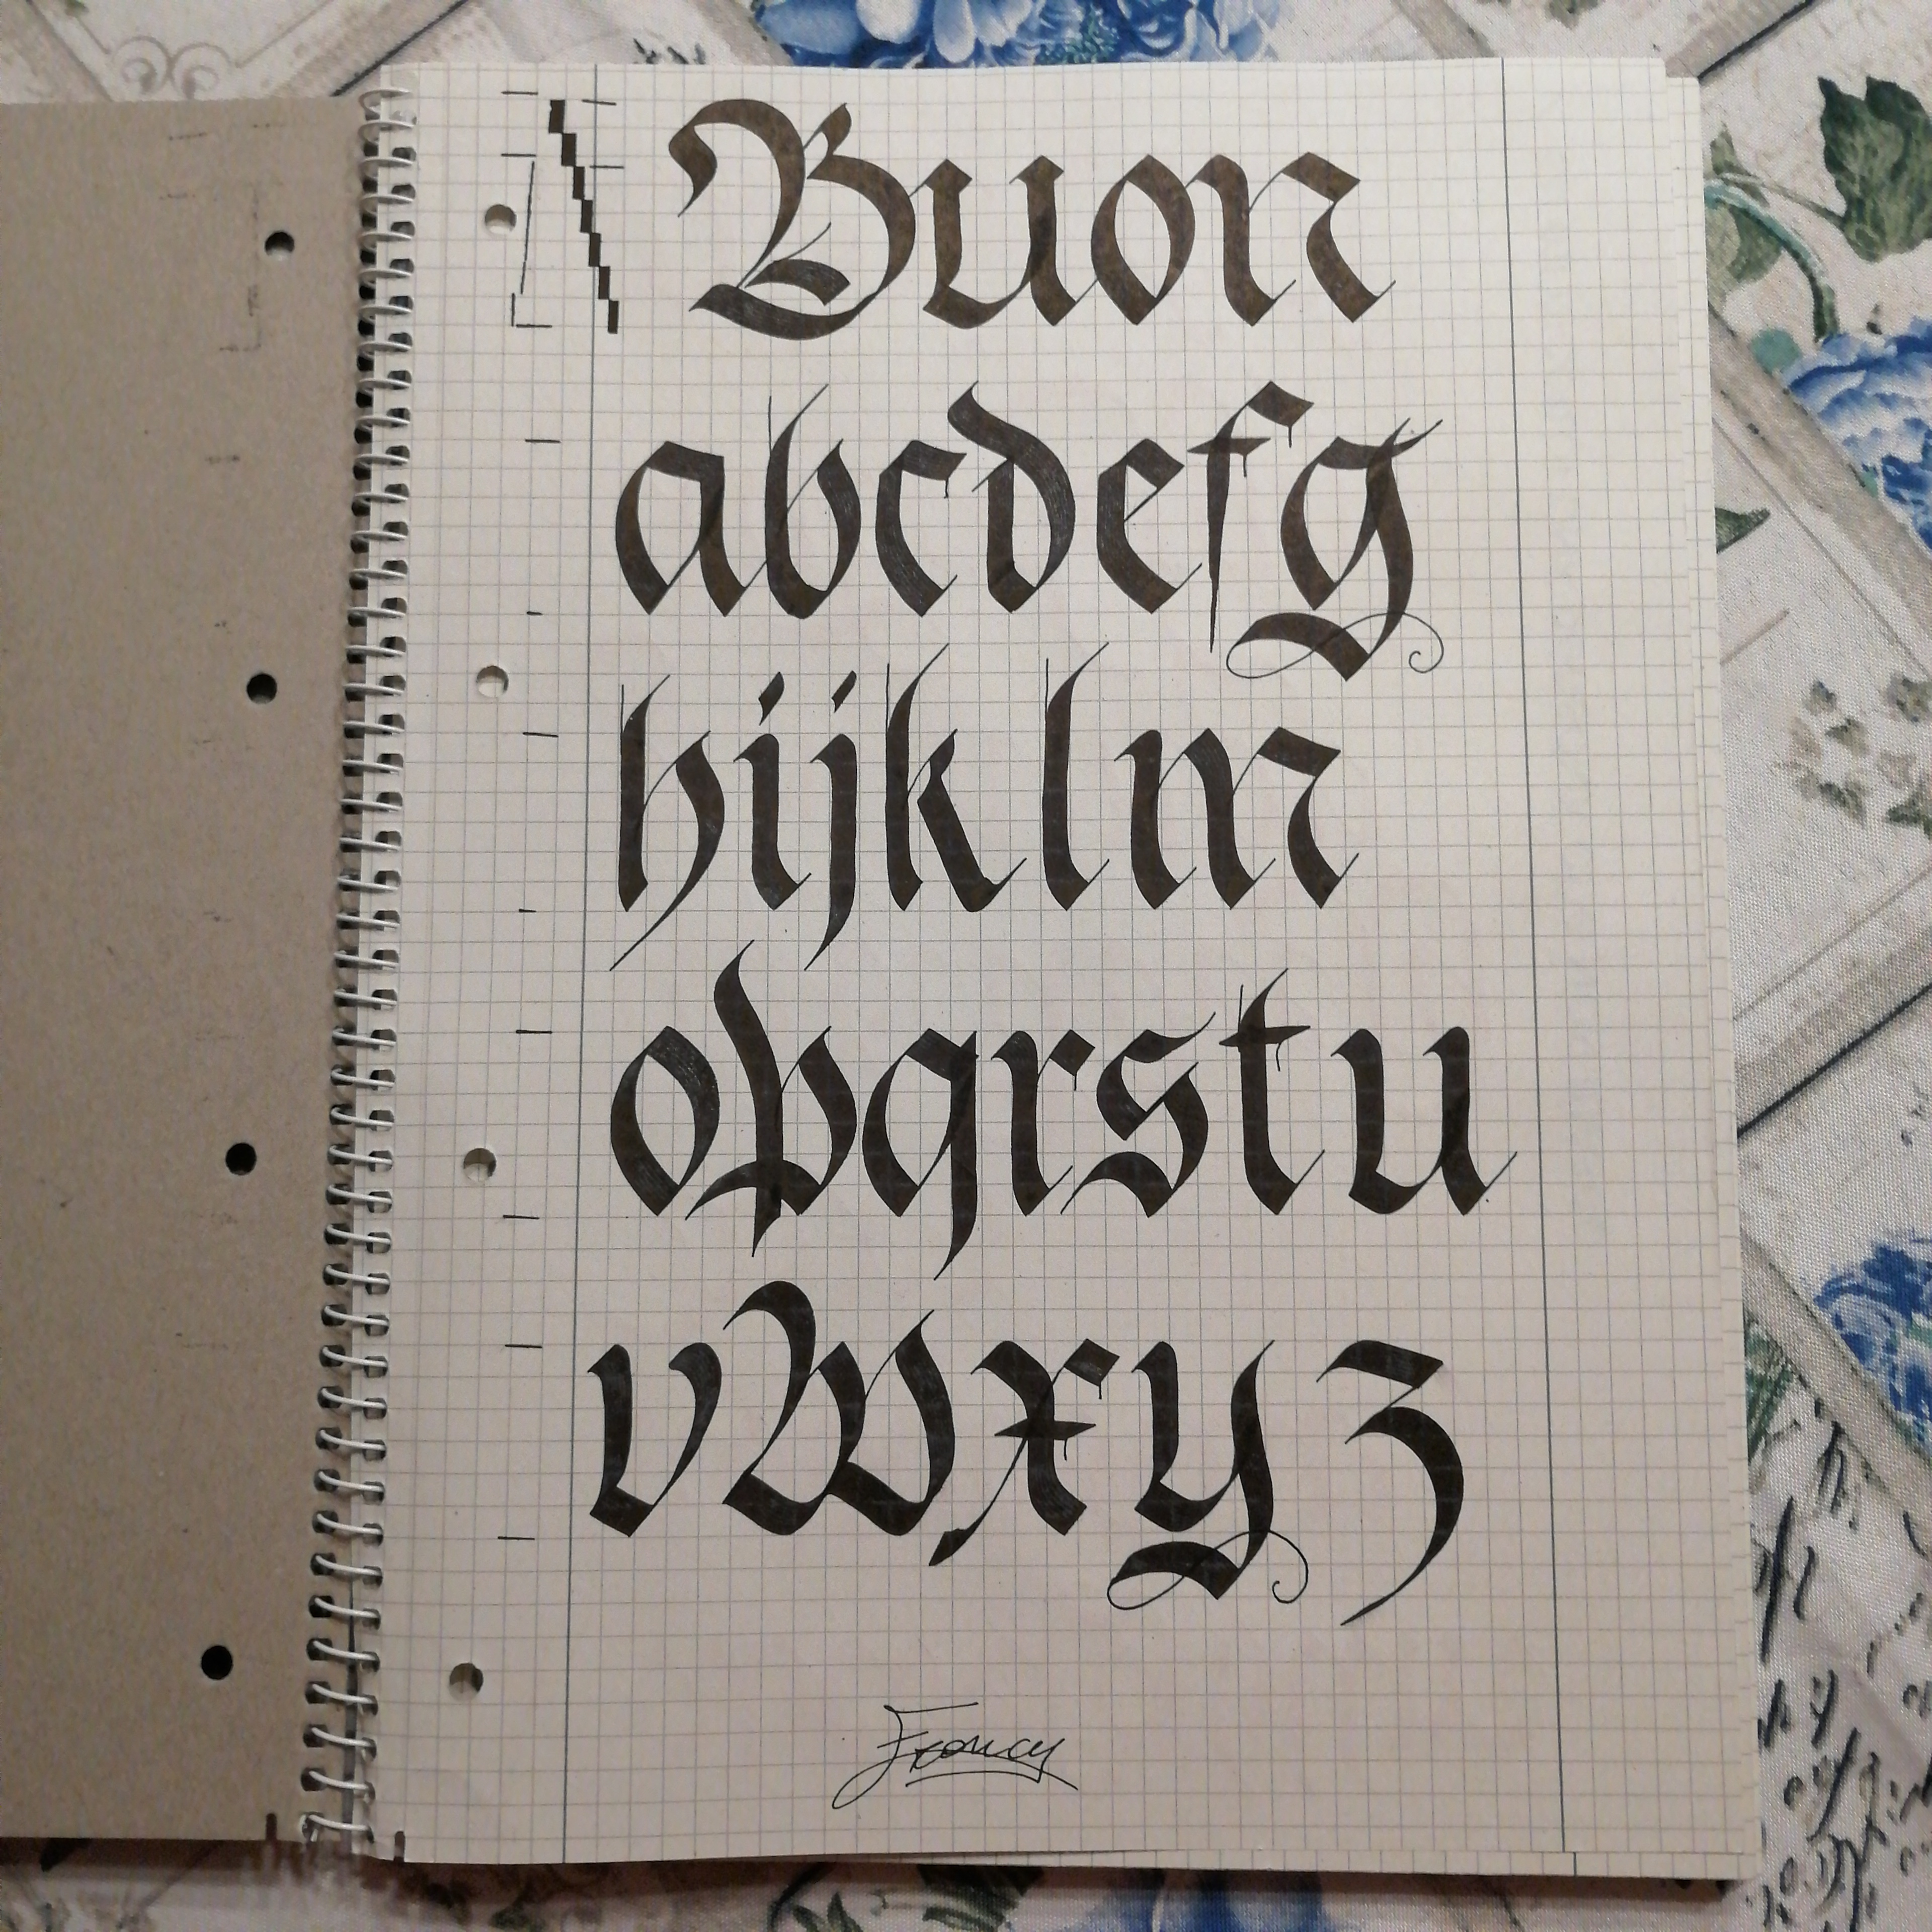 Buon
abcdefg
hijklm
opqrstu
vwxyz
Francy